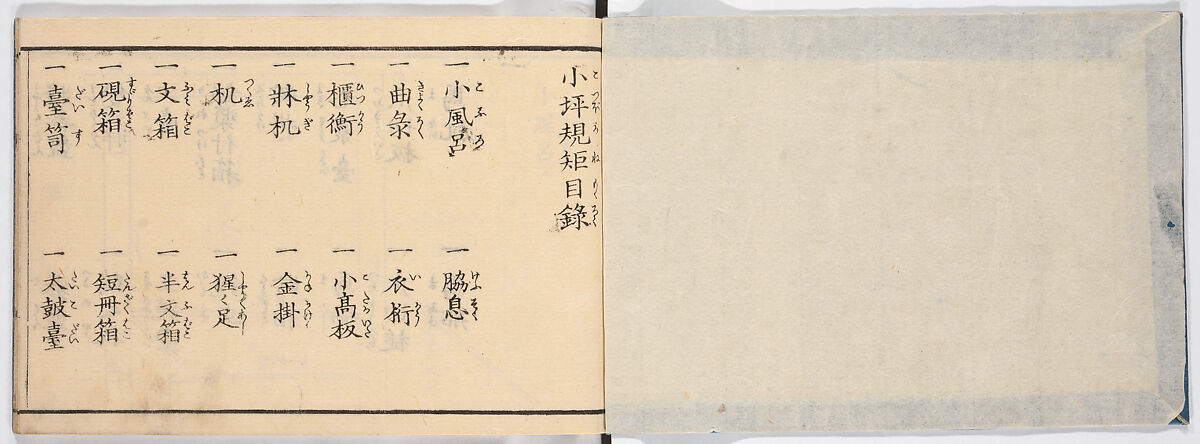 小坪規矩目錄
一 小風呂 一 脇息
一 曲彔 一 衣桁
一 櫃衡 一 小髙板
一 牀机 一 金掛
一 机 一 猩〱足
一 文箱 一 半文箱
一 硯箱 一 短冊箱
一 臺笥 一 太皷臺